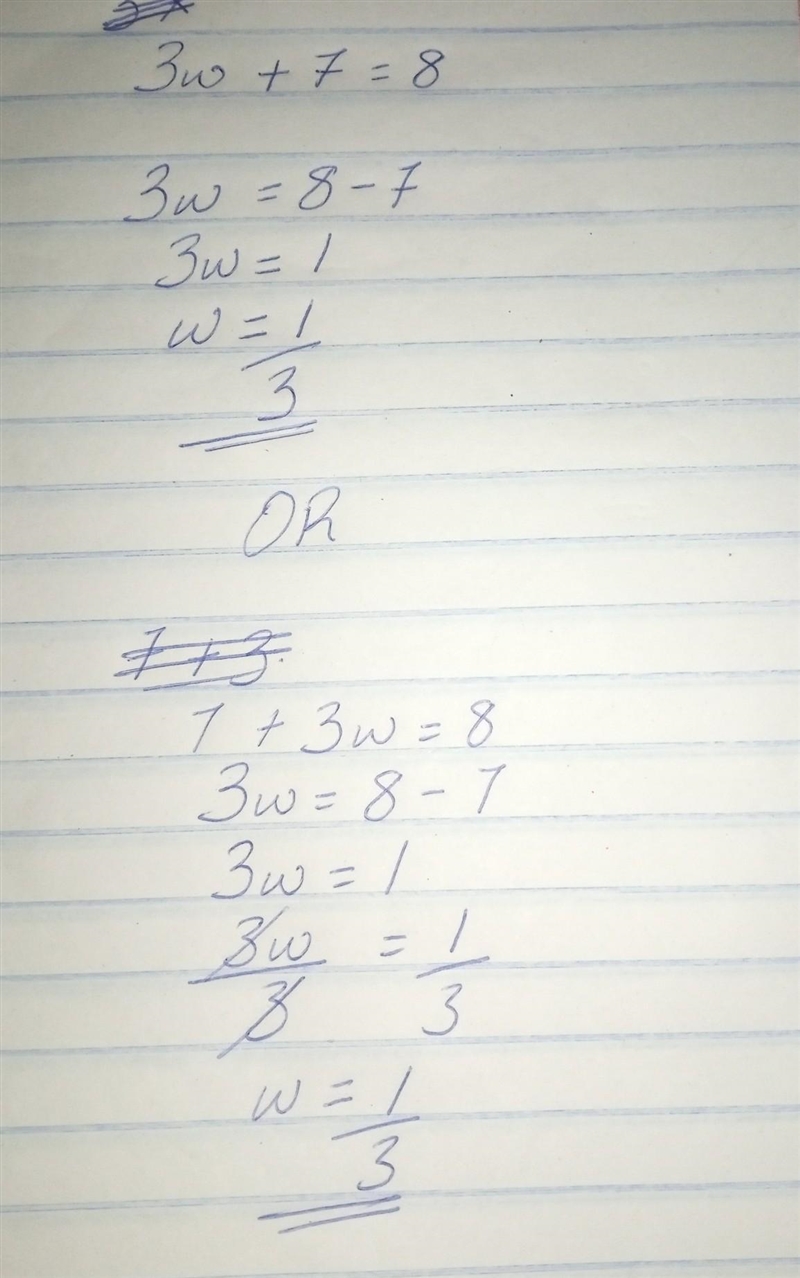 3w + 7 = 8
3w = 8 - 7
3w = 1
w = 1/3
OR
7 + 3
7 + 3w = 8
3w = 8 - 7
3w = 1
3w/3 = 1/3
w = 1/3